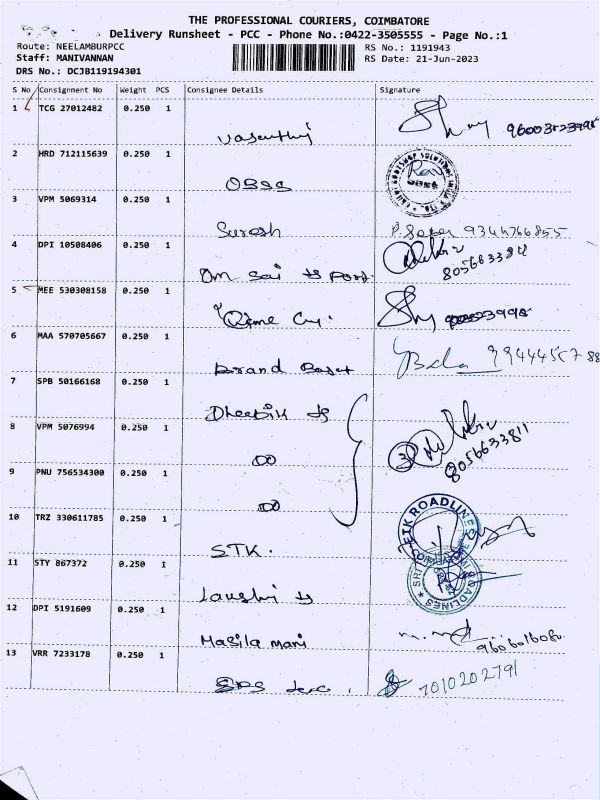 THE PROFESSIONAL COURIERS, COIMBATORE
Delivery Runsheet - PCC - Phone No.:0422-3505555 - Page No.:1
Route: NEELAMBURPCC RS No.: 1191943
Staff: MANIVANNAN RS Date: 21-Jun-2023
DRS No.: DCJB119194301
S No Consignment No Weight PCS Consignee Details Signature
1 TCG 27012482 0.250 1
Vasanthi
2 HRD 712115639 0.250 1
OBSS
3 VPM 5069314 0.250 1
Suresh 9344766855
4 DPI 10508406 0.250 1
Om Sai 8056633811
5 MEE 530308158 0.250 1
6 MAA 570705667 0.250 1
Brand
7 SPB 50166168 0.250 1
Dheepik
8 VPM 5076994 0.250 1
DO 8056633811
9 PNU 756534300 0.250 1
DO
10 TRZ 330611785 0.250 1
STK. ROADLINES
11 STY 867372 0.250 1
12 DPI 5191609 0.250 1
Masila mani
13 VRR 7233178 0.250 1
7010202791